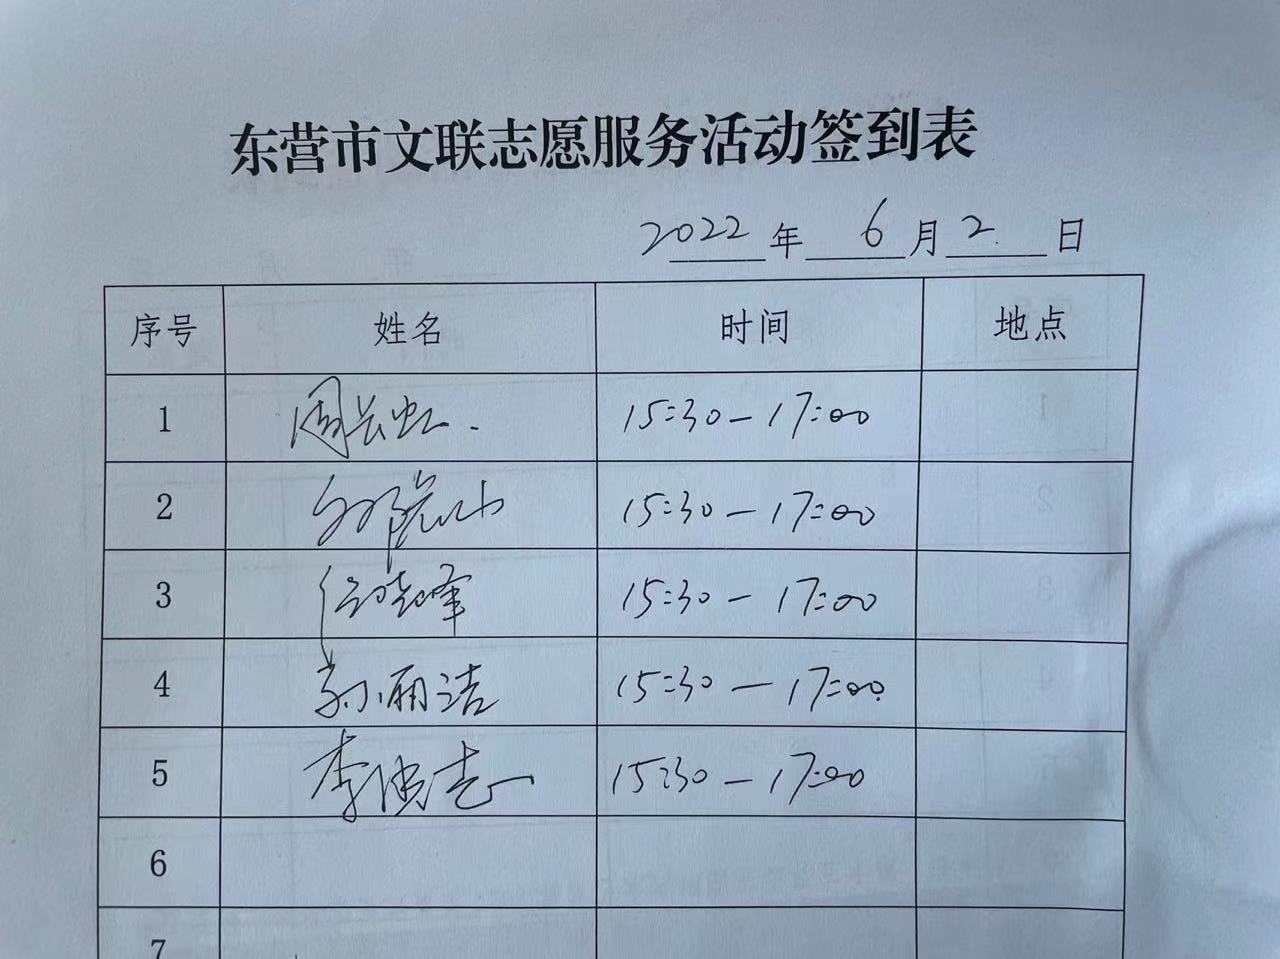 东营市文联志愿服务活动签到表
2022年 6月2日
序号 姓名 时间 地点
1 周长虹 15:30-17:00
2 15:30-17:00
3 任晓峰 15:30-17:00
4 孙丽洁 15:30-17:00
5 李洪志 15:30-17:00
6
7